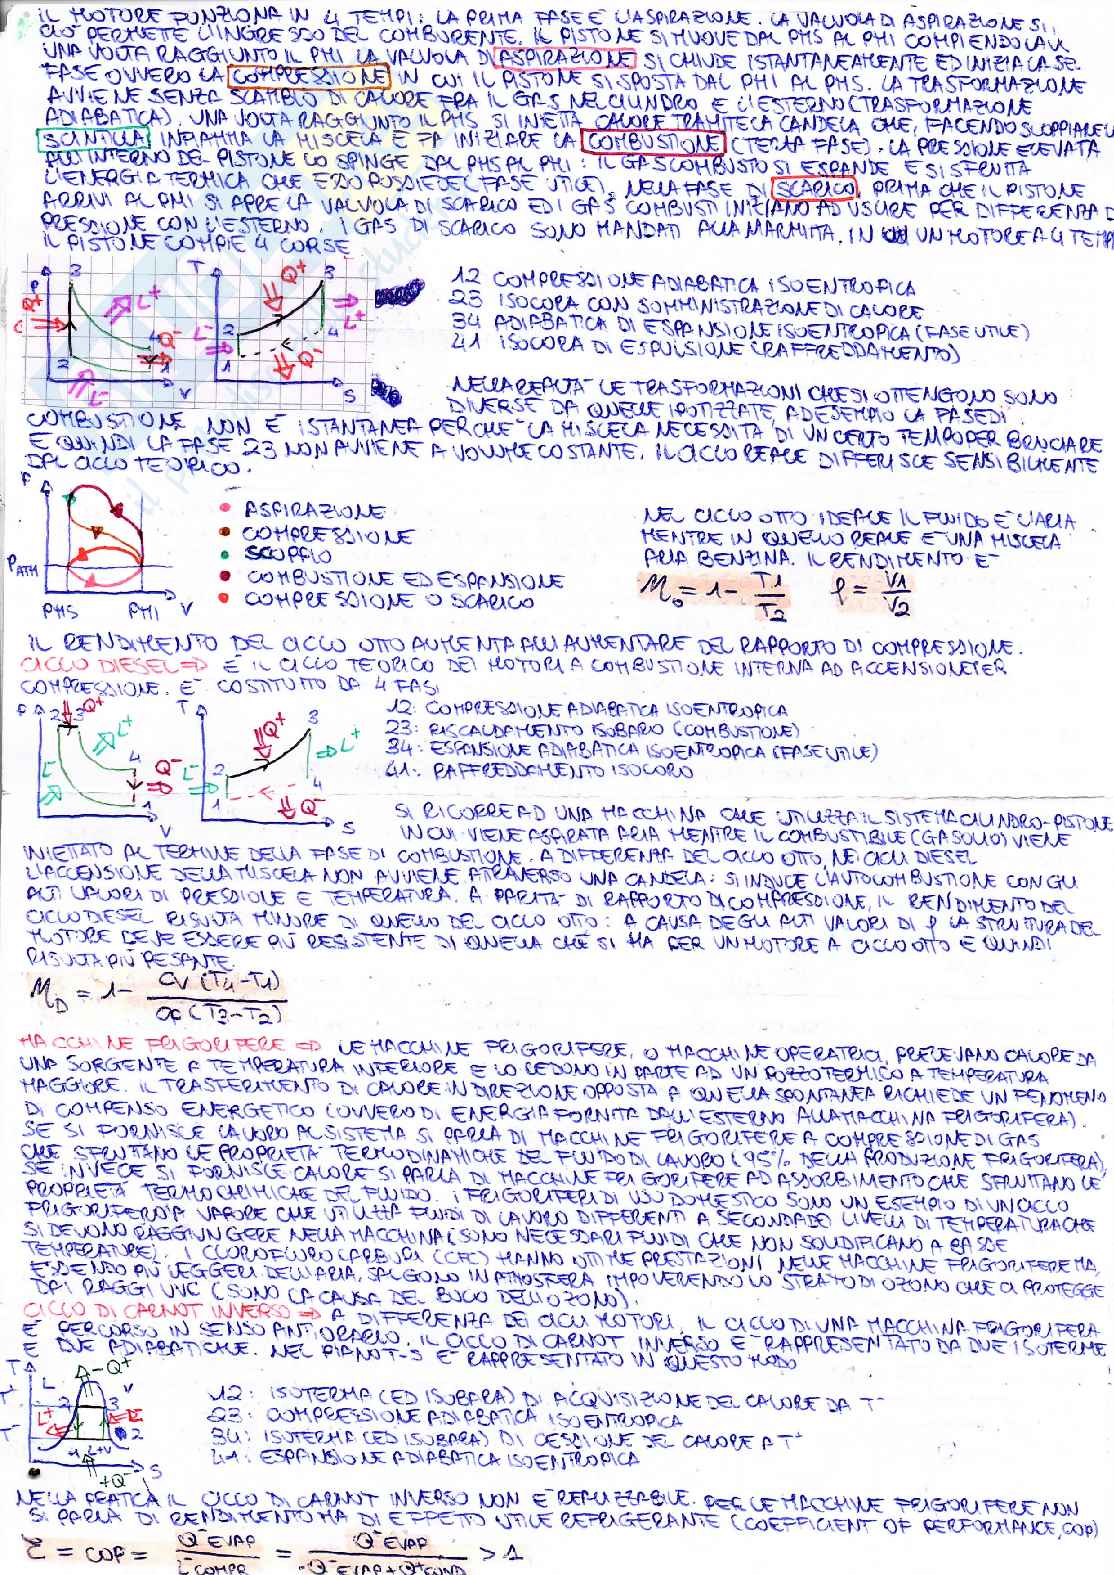 IL MOTORE FUNZIONA IN 4 TEMPI: LA PRIMA FASE È L'ASPIRAZIONE. LA VALVOLA DI ASPIRAZIONE SI
CIÒ PERMETE L'INGRESSO DEL COMBURENTE. IL PISTONE SI MUOVE DAL PMS AL PMI COMPIENDO LA
UNA VOLTA RAGGIUNTO IL PMI LA VALVOLA DI ASPIRAZIONE SI CHIUDE ISTANTANEAMENTE ED INIZIA LA SE-
FASE OVVERO LA COMPRESSIONE IN CUI IL PISTONE SI SPOSTA DAL PMI AL PMS. LA TRASFORMAZIONE
AVVIENE SENZA SCAMBIO DI CALORE FRA IL GAS NEL CILINDRO E L'ESTERNO (TRASFORMAZIONE
ADIABATICA). UNA VOLTA RAGGIUNTO IL PMS SI INIETA CALORE TRAMITE LA CANDELA CHE, FACENDO SCOPPIARE LA
SCINTILLA INFIAMMA LA MISCELA E FA INIZIARE LA COMBUSTIONE (TERZA FASE). LA PRESSIONE ELEVATA
ALL'INTERNO DEL PISTONE LO SPINGE DAL PMS AL PMI: IL GAS COMBUSTO SI ESPANDE E SI SFRUTTA
L'ENERGIA TERMICA CHE ESSO POSSIEDE (FASE UTILE). NELLA FASE DI SCARICO, PRIMA CHE IL PISTONE
ARRIVI AL PMI SI APRE LA VALVOLA DI SCARICO ED I GAS COMBUSTI INIZIANO AD USCIRE PER DIFFERENZA DI
PRESSIONE CON L'ESTERNO. I GAS DI SCARICO SONO MANDATI ALLA MARMITTA. IN UN MOTORE A 4 TEMPI
IL PISTONE COMPIE 4 CORSE
P 3 Q+ L+ 4 Q- 2 1 L- V
T Q+ 3 L+ 2 L- 4 1 Q- S
12 COMPRESSIONE ADIABATICA ISOENTROPICA
23 ISOCORA CON SOMMINISTRAZIONE DI CALORE
34 ADIABATICA DI ESPANSIONE ISOENTROPICA (FASE UTILE)
41 ISOCORA DI ESPULSIONE (RAFFREDDAMENTO)
NELLA REALTÀ LE TRASFORMAZIONI CHE SI OTTENGONO SONO
DIVERSE DA QUELLE IPOTIZZATE, AD ESEMPIO LA FASE DI
COMBUSTIONE NON È ISTANTANEA PERCHÈ LA MISCELA NECESSITA DI UN CERTO TEMPO PER BRUCIARE
E QUINDI LA FASE 23 NON AVVIENE A VOLUME COSTANTE. IL CICLO REALE DIFFERISCE SENSIBILMENTE
DAL CICLO TEORICO.
P PATM PMS PMI V
• ASPIRAZIONE
• COMPRESSIONE
• SCOPPIO
• COMBUSTIONE ED ESPANSIONE
• COMPRESSIONE O SCARICO
NEL CICLO OTTO IDEALE IL FLUIDO È L'ARIA
MENTRE IN QUELLO REALE È UNA MISCELA
ARIA BENZINA. IL RENDIMENTO È
η₀ = 1 - T1/T2 ρ = V1/V2
IL RENDIMENTO DEL CICLO OTTO AUMENTA ALL'AUMENTARE DEL RAPPORTO DI COMPRESSIONE.
CICLO DIESEL ⇒ È IL CICLO TEORICO DEI MOTORI A COMBUSTIONE INTERNA AD ACCENSIONE PER
COMPRESSIONE. È COSTITUITO DA 4 FASI
P 2 3 Q+ L+ 4 Q- L- 1 V
T Q+ 3 L+ 2 L- 4 1 Q- S
12: COMPRESSIONE ADIABATICA ISOENTROPICA
23: RISCALDAMENTO ISOBARO (COMBUSTIONE)
34: ESPANSIONE ADIABATICA ISOENTROPICA (FASE UTILE)
41: RAFFREDDAMENTO ISOCORO
SI RICORRE AD UNA MACCHINA CHE UTILIZZA IL SISTEMA CILINDRO-PISTONE
IN CUI VIENE ASPIRATA ARIA MENTRE IL COMBUSTIBILE (GASOLIO) VIENE
INIETTATO AL TERMINE DELLA FASE DI COMBUSTIONE. A DIFFERENZA DEL CICLO OTTO, NEI CICLI DIESEL
L'ACCENSIONE DELLA MISCELA NON AVVIENE ATRAVERSO UNA CANDELA: SI INDUCE L'AUTOCOMBUSTIONE CON GLI
ALTI VALORI DI PRESSIONE E TEMPERATURA. A PARITÀ DI RAPPORTO DI COMPRESSIONE, IL RENDIMENTO DEL
CICLO DIESEL RISULTA MINORE DI QUELLO DEL CICLO OTTO: A CAUSA DEGLI ALTI VALORI DI ρ LA STRUTTURA DEL
MOTORE DEVE ESSERE PIÙ RESISTENTE DI QUELLA CHE SI HA PER UN MOTORE A CICLO OTTO E QUINDI
RISULTA PIÙ PESANTE.
ηD = 1 - cv (T4-T1) / cp (T3-T2)
MACCHINE FRIGORIFERE ⇒ LE MACCHINE FRIGORIFERE, O MACCHINE OPERATRICI, PRELEVANO CALORE DA
UNA SORGENTE A TEMPERATURA INFERIORE E LO CEDONO IN PARTE AD UN POZZO TERMICO A TEMPERATURA
MAGGIORE. IL TRASFERIMENTO DI CALORE IN DIREZIONE OPPOSTA A QUELLA SPONTANEA RICHIEDE UN FENOMENO
DI COMPENSO ENERGETICO (OVVERO DI ENERGIA FORNITA DALL'ESTERNO ALLA MACCHINA FRIGORIFERA).
SE SI FORNISCE LAVORO AL SISTEMA SI PARLA DI MACCHINE FRIGORIFERE A COMPRESSIONE DI GAS
CHE SFRUTTANO LE PROPRIETÀ TERMODINAMICHE DEL FLUIDO DI LAVORO (95% DELLA PRODUZIONE FRIGORIFERA),
SE INVECE SI FORNISCE CALORE SI PARLA DI MACCHINE FRIGORIFERE AD ASSORBIMENTO CHE SFRUTTANO LE
PROPRIETÀ TERMOCHIMICHE DEL FLUIDO. I FRIGORIFERI DI USO DOMESTICO SONO UN ESEMPIO DI UN CICLO
FRIGORIFERO A VAPORE CHE UTILIZZA FLUIDI DI LAVORO DIFFERENTI A SECONDA DEI LIVELLI DI TEMPERATURA CHE
SI DEVONO RAGGIUNGERE NELLA MACCHINA (SONO NECESSARI FLUIDI CHE NON SOLIDIFICANO A BASSE
TEMPERATURE). I CLOROFLUOROCARBURI (CFC) HANNO OTTIME PRESTAZIONI NELLE MACCHINE FRIGORIFERE MA,
ESSENDO PIÙ LEGGERI DELL'ARIA, SALGONO IN ATMOSFERA IMPOVERENDO LO STRATO DI OZONO CHE CI PROTEGGE
DAI RAGGI UVC (SONO LA CAUSA DEL BUCO DELL'OZONO).
CICLO DI CARNOT INVERSO ⇒ A DIFFERENZA DEI CICLI MOTORI, IL CICLO DI UNA MACCHINA FRIGORIFERA
È PERCORSO IN SENSO ANTIORARIO. IL CICLO DI CARNOT INVERSO È RAPPRESENTATO DA DUE ISOTERME
E DUE ADIABATICHE. NEL PIANO T-S È RAPPRESENTATO IN QUESTO MODO
T -Q+ T+ L 2 3 V L+ L- T- L+V 2 S +Q-
12: ISOTERMA (ED ISOBARA) DI ACQUISIZIONE DEL CALORE DA T-
23: COMPRESSIONE ADIABATICA ISOENTROPICA
34: ISOTERMA (ED ISOBARA) DI CESSIONE DEL CALORE A T+
41: ESPANSIONE ADIABATICA ISOENTROPICA
NELLA PRATICA IL CICLO DI CARNOT INVERSO NON È REALIZZABILE. PER LE MACCHINE FRIGORIFERE NON
SI PARLA DI RENDIMENTO MA DI EFFETTO UTILE REFRIGERANTE (COEFFICIENT OF PERFORMANCE, COP)
Σ = COP = Q-EVAP / L-COMPR = Q-EVAP / -Q-EVAP+Q+COND > 1